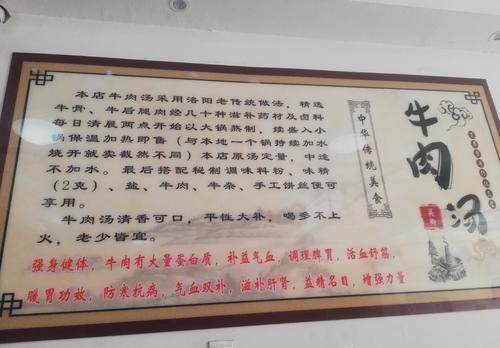 本店牛肉汤采用洛阳老传统做法，精选
牛骨、牛后腿肉经几十种滋补药材及卤料
每日清晨两点开始以大锅熬制，续盛入小
锅保温加热即售（与本地一个锅持续加水
烧开就卖截然不同）本店原汤定量，中途
不加水。最后搭配秘制调味料粉、味精
（2克）、盐、牛肉、牛杂、手工饼丝便可
享用。
牛肉汤清香可口，平性大补，喝多不上
火，老少皆宜。
强身健体，牛肉有大量蛋白质，补益气血，调理脾胃，活血舒筋，
暖胃功效，防寒抗病，气血双补，滋补肝肾，益精名目，增强力量
中华传统美食
牛肉汤
美味